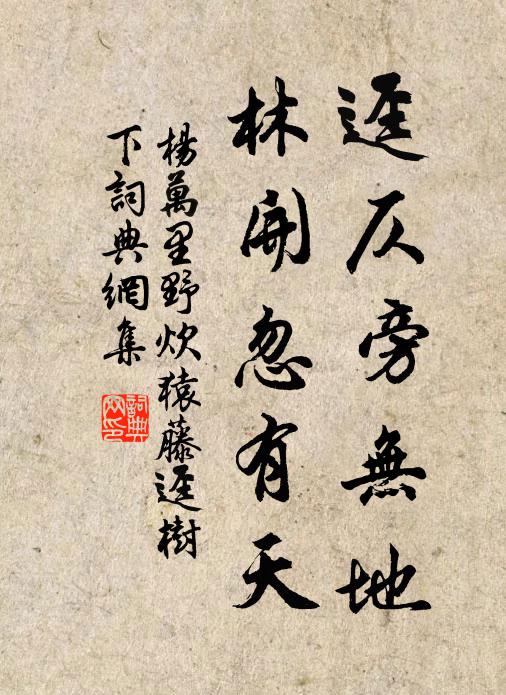 逕仄旁無地
林開忽有天
楊萬里野炊猿藤逕樹
下詞典網集
詞典
網印